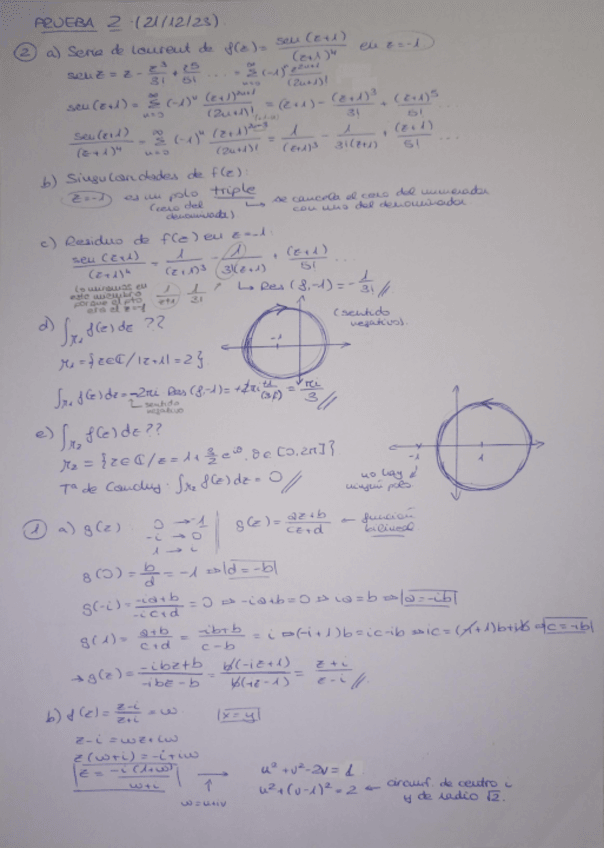 PRUEBA 2 · (21/12/23).
② a) Serie de Laurent de f(z) = sen(z+1)/(z+1)⁴ en z=-1
sen z = z - z³/3! + z⁵/5! ... = Σ_{n=0}^∞ (-1)ⁿ z^{2n+1}/(2n+1)!
sen(z+1) = Σ_{n=0}^∞ (-1)ⁿ (z+1)^{2n+1}/(2n+1)! = (z+1) - (z+1)³/3! + (z+1)⁵/5! ...
sen(z+1)/(z+1)⁴ = Σ_{n=0}^∞ (-1)ⁿ (z+1)^{2n-3}/(2n+1)! = 1/(z+1)³ - 1/3!(z+1) + (z+1)/5! ...
b) Singularidades de f(z):
z=-1 es un polo triple ↳ se cancela el cero del numerador
(cero del denominador) con uno del denominador
c) Residuo de f(z) en z=-1.
sen(z+1)/(z+1)⁴ = 1/(z+1)³ - 1/3!(z+1) + (z+1)/5! ...
1/z+1 · 1/3! ↳ Res(f,-1) = -1/3! //
d) ∫_{γ₁} f(z)dz ?? (sentido negativo).
γ₁ = {z∈ℂ / |z+1| = 2}
-1
∫_{γ₁} f(z)dz = -2πi Res(f,-1) = πi/3 //
↳ sentido negativo
e) ∫_{γ₂} f(z)dz ??
γ₂ = {z∈ℂ / z = 1 + 3/2 e^{iθ}, θ∈[0,2π]}
-1 1
no hay ningún polo
Tª de Cauchy: ∫_{γ₂} f(z)dz = 0 //
① a) g(z) 0 → -1
-i → 0
1 → i
g(z) = az+b/cz+d ← función bilineal
g(0) = b/d = -1 ⇒ d=-b
g(-i) = -ia+b/-ic+d = 0 ⇒ -ia+b=0 ⇒ ia=b ⇒ a=-ib
g(1) = a+b/c+d = -ib+b/c-b = i ⇒ (-i+1)b = ic-ib ⇒ ic = (-i+1)b+ib ⇒ c=-ib
→ g(z) = -ibz+b/-ibz-b = b(-iz+1)/b(-iz-1) = z+i/z-i //
b) f(z) = z-i/z+i = w x=y
z-i = wz+iw
z(w+i) = -i+iw
z = -i(1+w)/w+i → u²+v²-2v=1
w=u+iv u²+(v-1)²=2 ← circunf. de centro i
y de radio √2.